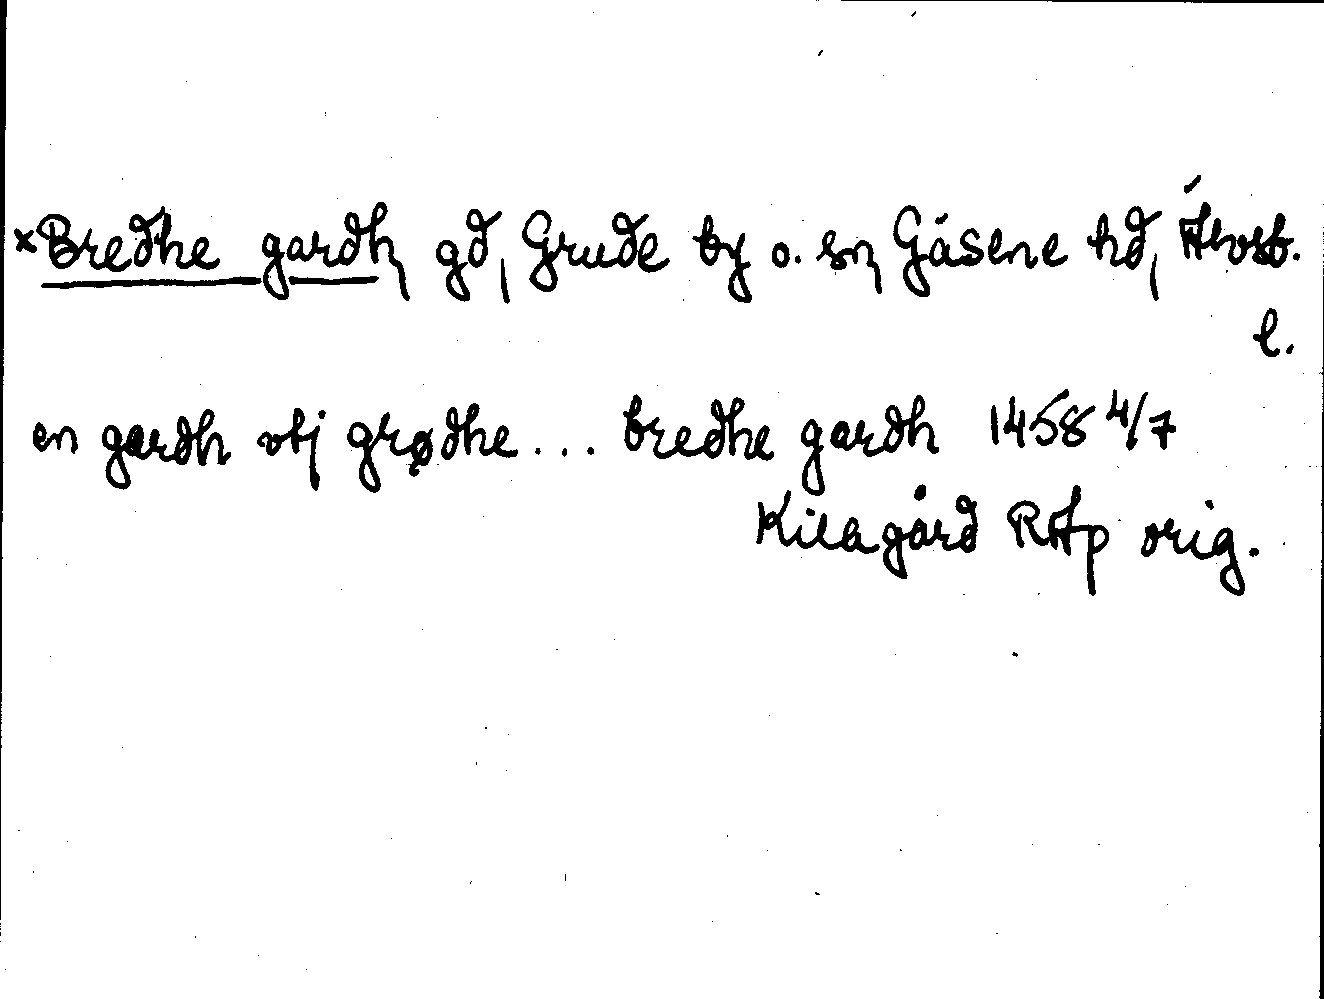 ×Bredhe gardh, gd, Grude by o. sn, Gäsene hd, Älvsb.
l.
en gardh vtj grødhe... bredhe gardh 1458 4/7
Kilagård RAp orig.